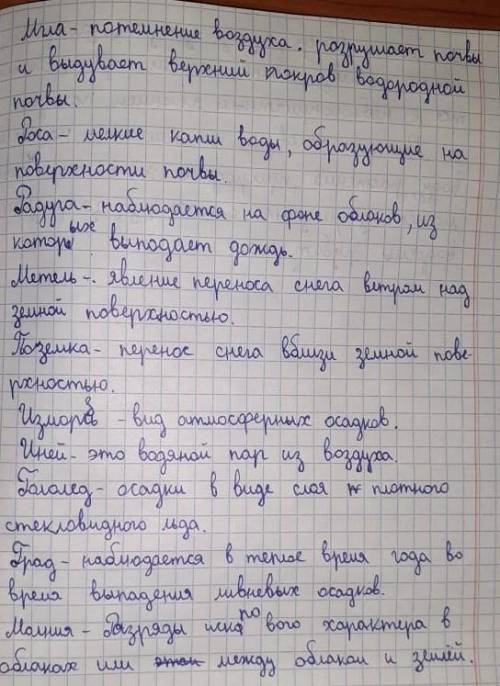 Мгла - потемнение воздуха. разрушает почвы
и выдувает верхний покров водородной
почвы.
Роса - мелкие капли воды, образующие на
поверхности почвы.
Радуга - наблюдается на фоне облаков, из
которых выподает дождь.
Метель - явление переноса снега ветром над
земной поверхностью.
Поземка - перенос снега вблизи земной пове-
рхностью.
Изморозь - вид атмосферных осадков.
Иней - это водяной пар из воздуха.
Гололед - осадки в виде слоя плотного
стекловидного льда.
Град - наблюдается в теплое время года во
время выпадения ливневых осадков.
Молния - Разряды искрового характера в
облаках или между облакои и землёй.